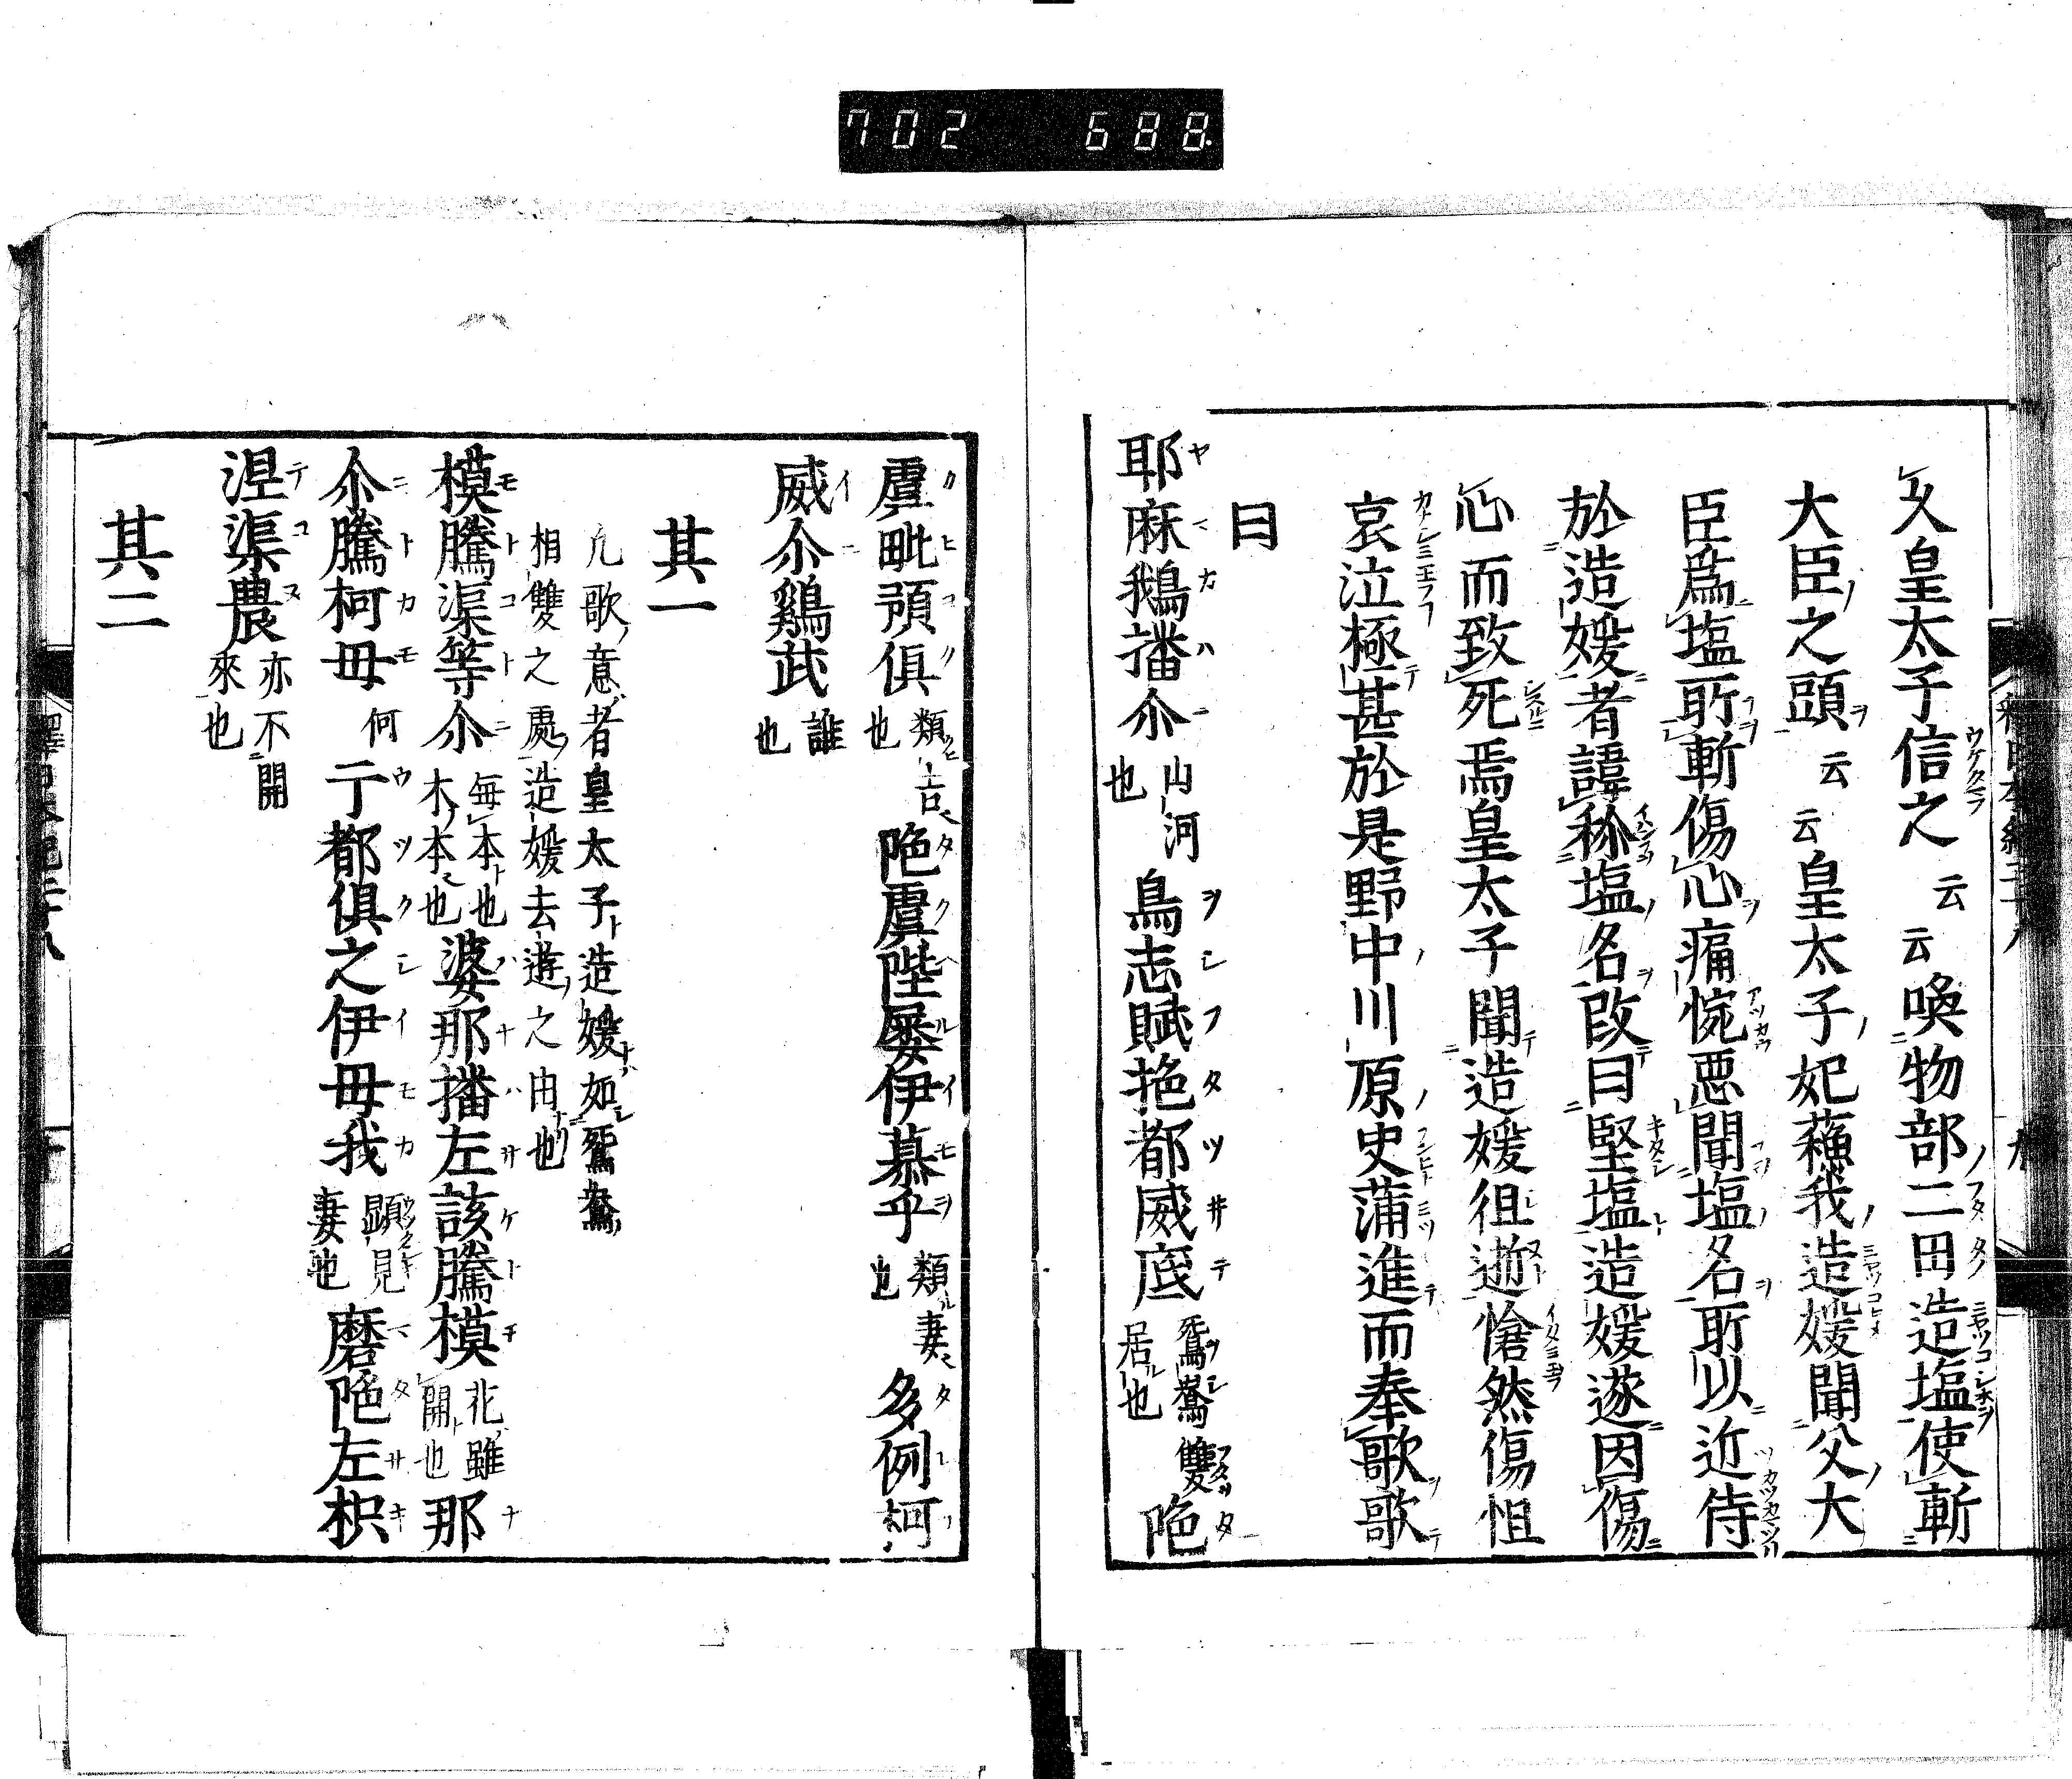 702 688
又皇太子信之云云喚物部二田造塩使斬
大臣之頭云云皇太子妃蘓我造媛聞父大
臣爲塩所斬傷心痛惋悪聞塩名所以近侍
於造媛者諱称塩名改曰堅塩造媛遂因傷
心而致死焉皇太子聞造媛徂逝愴然傷怛
哀泣極甚於是野中川原史蒲進而奉歌歌
曰
耶麻鵝播尒山河也烏志賦拖都威底鴛鴦雙居也陁
虞毗預倶類吉也陁虞陛屡伊慕乎類妻也多例柯
威尒鶏武誰也
其一
凡歌意者皇太子造媛如鴛鴦
相雙之處造媛去逝之由也
模騰渠等尒毎本也木本也婆那播左該騰模花雖開也那
尒騰柯母何于都倶之伊母我顕見妻也磨陁左枳
涅渠農亦不開來也
其二